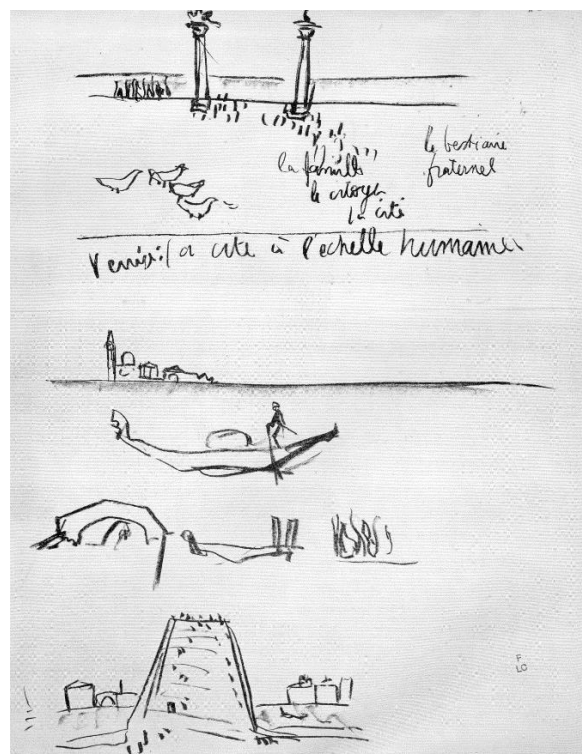 la famille
le citoyen
la cité
le bestiaire
fraternel
Venise: la cité à l'echelle humaine
F
LC